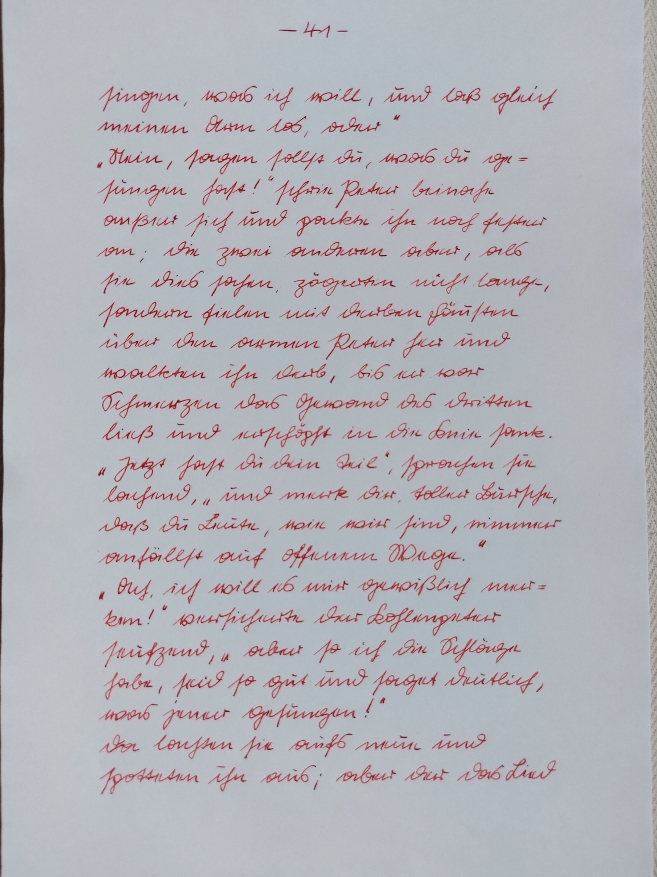 — 41 —
singen, was ich will, und laß gleich
meinen Arm los, oder“
„Nein, sagen sollst du, was du ge=
sungen hast!“ schrie Peter beinahe
außer sich und packte ihn noch fester
an; die zwei anderen aber, als
sie dies sahen, zögerten nicht lange,
sondern fielen mit derben Fäusten
über den armen Peter her und
walkten ihn derb, bis er vor
Schmerzen das Gewand des dritten
ließ und erschöpft in die Knie sank.
„Jetzt hast du dein Teil“, sprachen sie
lachend, „und merk dir, toller Bursche,
daß du Leute, wie wir sind, nimmer
anfällst auf offenem Wege.“
„Ach, ich will es mir gewißlich mer=
ken!“ versicherte der Kohlenpeter
seufzend, „aber so ich die Schläge
habe, seid so gut und saget deutlich,
was jener gesungen!“
Da lachten sie aufs neue und
spotteten ihn aus; aber der das Lied